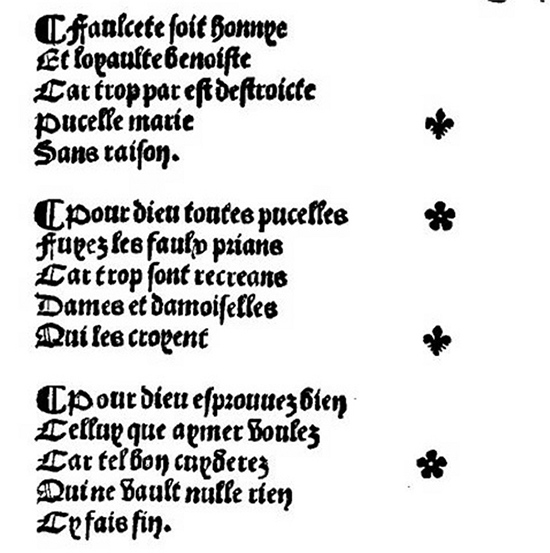 ¶ Faulcete soit honnye
Et loyaulte benoiste
Car trop par est destroicte
Pucelle marie
Sans raison.
¶ Pour dieu toutes pucelles
Fuyez les faulx prians
Car trop sont recreans
Dames et damoiselles
Qui les croyent
¶ Pour dieu esprouuez bien
Celluy que aymer voulez
Car tel bon cuyderez
Qui ne vault nulle rien
Cy fais fin.